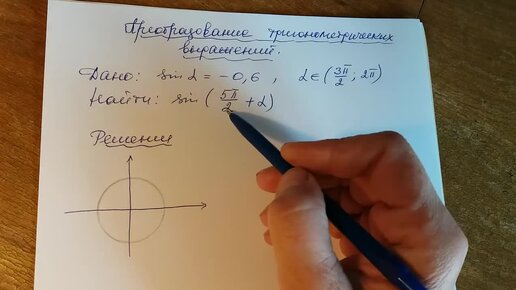 Преобразование тригонометрических
выражений.
Дано: sin α = -0,6 , α ∈ (3π/2 ; 2π)
Найти: sin (5π/2 + α)
Решении